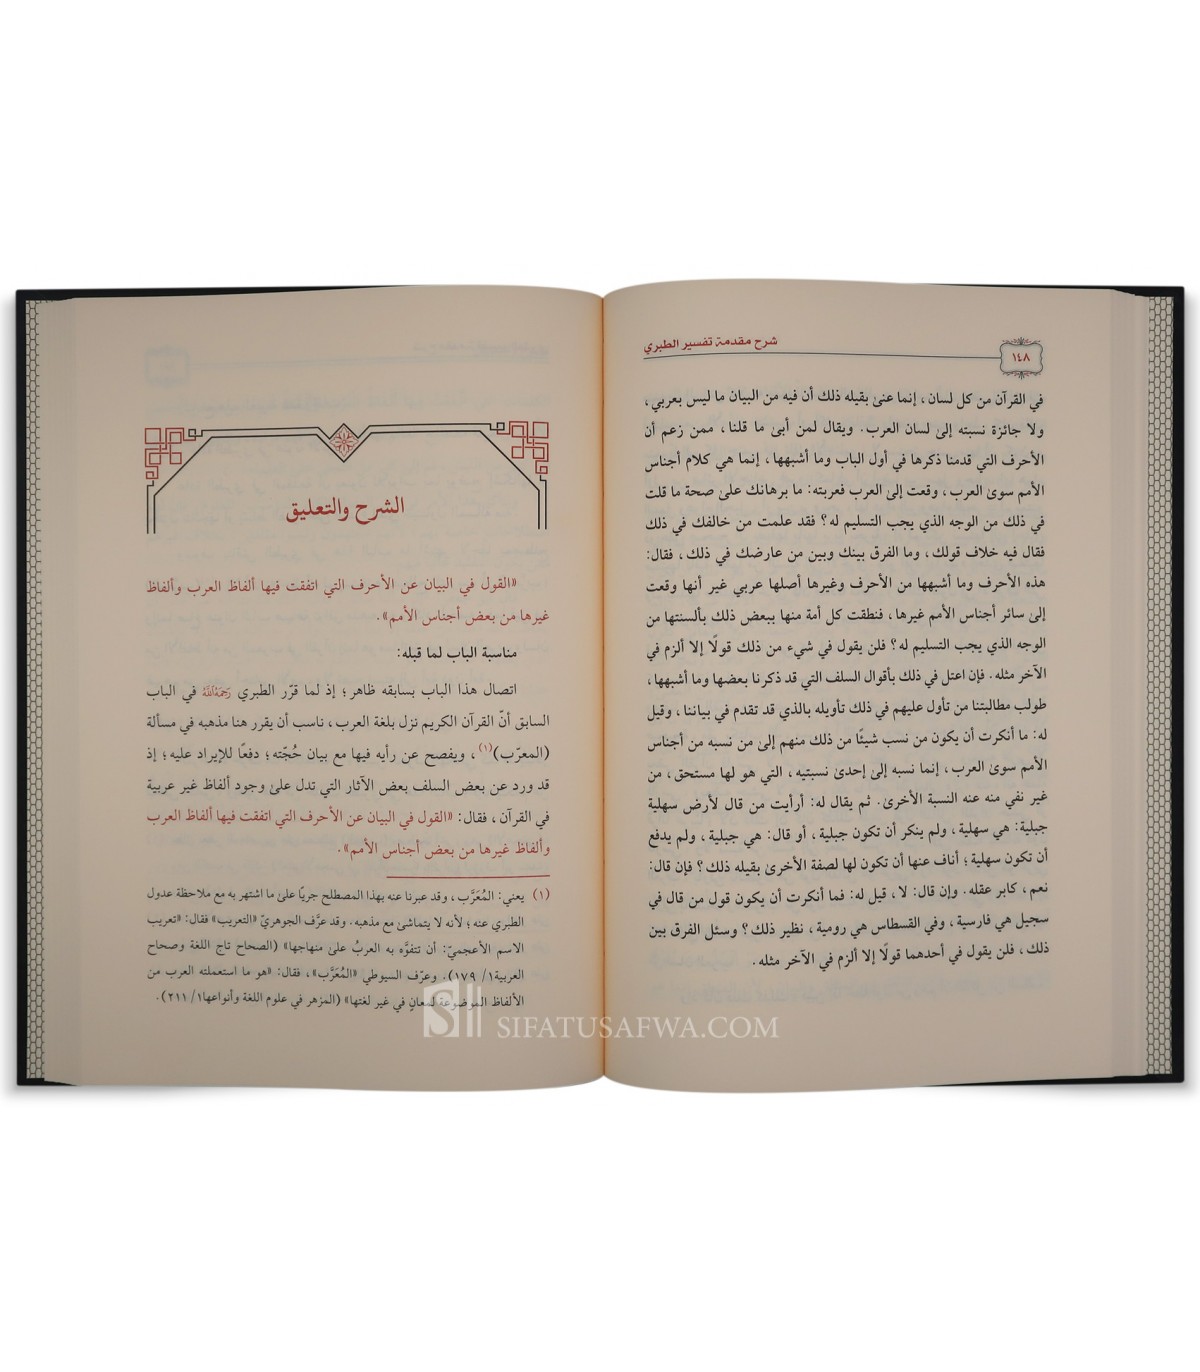 شرح مقدمة تفسير الطبري
١٤٨
في القرآن من كل لسان، إنما عنىٰ بقيله ذلك أن فيه من البيان ما ليس بعربي،
ولا جائزة نسبته إلىٰ لسان العرب. ويقال لمن أبىٰ ما قلنا، ممن زعم أن
الأحرف التي قدمنا ذكرها في أول الباب وما أشبهها، إنما هي كلام أجناس
الأمم سوىٰ العرب، وقعت إلىٰ العرب فعربته: ما برهانك علىٰ صحة ما قلت
في ذلك من الوجه الذي يجب التسليم له؟ فقد علمت من خالفك في ذلك
فقال فيه خلاف قولك، وما الفرق بينك وبين من عارضك في ذلك، فقال:
هذه الأحرف وما أشبهها من الأحرف وغيرها أصلها عربي غير أنها وقعت
إلىٰ سائر أجناس الأمم غيرها، فنطقت كل أمة منها ببعض ذلك بألسنتها من
الوجه الذي يجب التسليم له؟ فلن يقول في شيء من ذلك قولًا إلا ألزم في
الآخر مثله. فإن اعتل في ذلك بأقوال السلف التي قد ذكرنا بعضها وما أشبهها،
طولب مطالبتنا من تأول عليهم في ذلك تأويله بالذي قد تقدم في بياننا، وقيل
له: ما أنكرت أن يكون من نسب شيئًا من ذلك منهم إلىٰ من نسبه من أجناس
الأمم سوىٰ العرب، إنما نسبه إلىٰ إحدىٰ نسبتيه، التي هو لها مستحق، من
غير نفي منه عنه النسبة الأخرىٰ. ثم يقال له: أرأيت من قال لأرض سهلية
جبلية: هي سهلية، ولم ينكر أن تكون جبلية، أو قال: هي جبلية، ولم يدفع
أن تكون سهلية؛ أناف عنها أن تكون لها لصفة الأخرىٰ بقيله ذلك؟ فإن قال:
نعم، كابر عقله. وإن قال: لا، قيل له: فما أنكرت أن يكون قول من قال في
سجيل هي فارسية، وفي القسطاس هي رومية، نظير ذلك؟ وسئل الفرق بين
ذلك، فلن يقول في أحدهما قولًا إلا ألزم في الآخر مثله.
الشرح والتعليق
«القول في البيان عن الأحرف التي اتفقت فيها ألفاظ العرب وألفاظ
غيرها من بعض أجناس الأمم».
مناسبة الباب لما قبله:
اتصال هذا الباب بسابقه ظاهر؛ إذ لما قرّر الطبري رَحِمَهُ اللَّهُ في الباب
السابق أنّ القرآن الكريم نزل بلغة العرب، ناسب أن يقرر هنا مذهبه في مسألة
(المعرّب)(١)، ويفصح عن رأيه فيها مع بيان حُجّته؛ دفعًا للإيراد عليه؛ إذ
قد ورد عن بعض السلف بعض الآثار التي تدل علىٰ وجود ألفاظ غير عربية
في القرآن، فقال: «القول في البيان عن الأحرف التي اتفقت فيها ألفاظ العرب
وألفاظ غيرها من بعض أجناس الأمم».
(١) يعني: المُعَرَّب، وقد عبرنا عنه بهذا المصطلح جريًا علىٰ ما اشتهر به مع ملاحظة عدول
الطبري عنه؛ لأنه لا يتماشىٰ مع مذهبه. وقد عرَّف الجوهريّ «التعريب» فقال: «تعريب
الاسم الأعجميّ: أن تتفوَّه به العربُ علىٰ منهاجها» (الصحاح تاج اللغة وصحاح
العربية١/ ١٧٩). وعرّف السيوطي «المُعَرَّب»، فقال: «هو ما استعملته العرب من
الألفاظ الموضوعة لمعانٍ في غير لغتها» (المزهر في علوم اللغة وأنواعها١/ ٢١١).
SIFATUSAFWA.COM